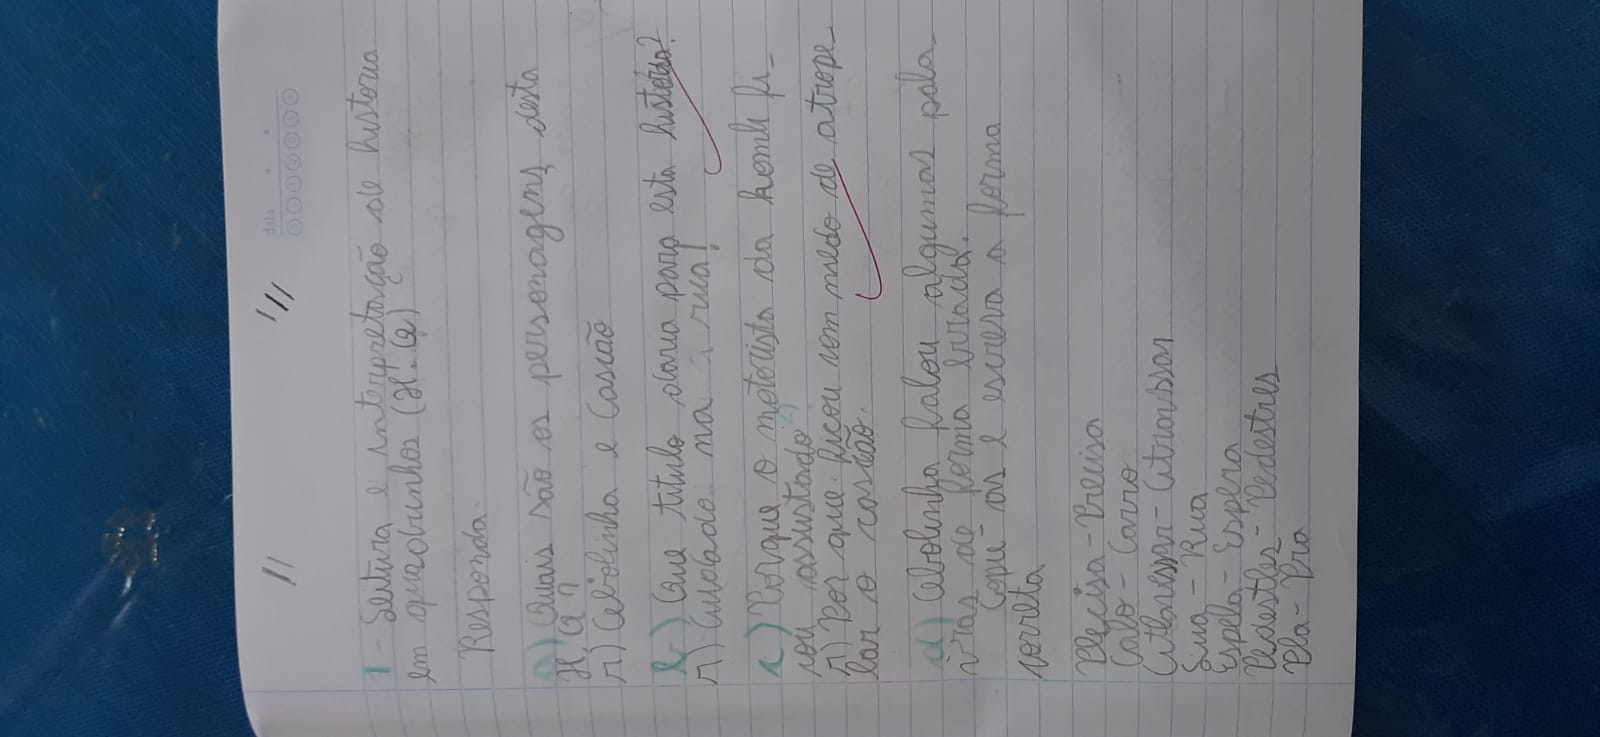 data
1 - Leitura e interpretação de historia
em quadrinhos (H.Q)
Responda.
a) Quais são os personagens desta
H,Q?
r) Cebolinha e Cascão
b) Que titulo daria para esta história?
r) Cuidado na rua!
c) Porque o motorista da kombi fi-
cou assustado?
r) Por que ficou com medo de atrope-
lar o cascão.
d) Cebolinha falou algumas pala-
vras de forma errada.
Copie-as e escreva a forma
correta
Plecisa - Precisa
Calo - Carro
Atlavessar - Atravessar
Lua - Rua
Espela - Espera
Pedestles - Pedestres
Pla - Pra